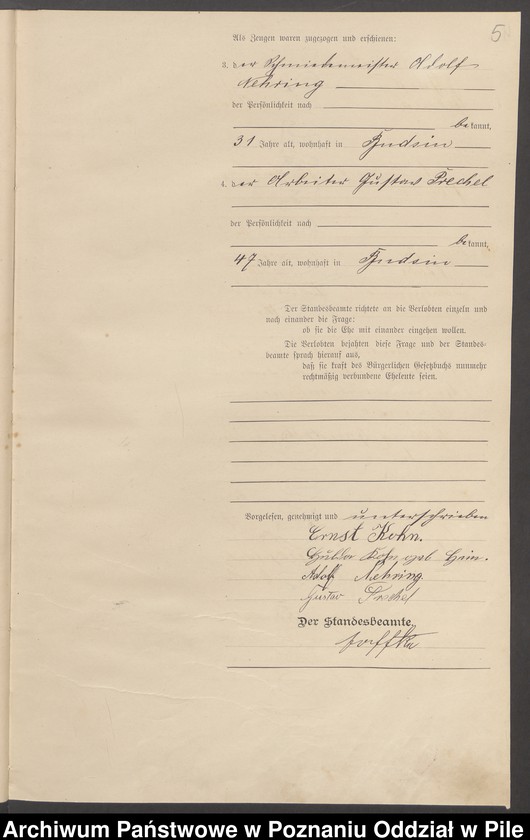 5
Als Zeugen waren zugezogen und erschienen:
3. der Schmiedemeister Adolf
Nehring
der Persönlichkeit nach
bekannt,
31 Jahre alt, wohnhaft in Hudsin
4. der Arbeiter Gustav Prechel
der Persönlichkeit nach
bekannt,
47 Jahre alt, wohnhaft in Hudsin
Der Standesbeamte richtete an die Verlobten einzeln und
nach einander die Frage:
ob sie die Ehe mit einander eingehen wollen.
Die Verlobten bejahten diese Frage und der Standes-
beamte sprach hierauf aus,
daß sie kraft des Bürgerlichen Gesetzbuchs nunmehr
rechtmäßig verbundene Eheleute seien.
Vorgelesen, genehmigt und unterschrieben
Ernst Kohn.
Kohn geb
Adolf Nehring.
Gustav Prechel
Der Standesbeamte.
Archiwum Państwowe w Poznaniu Oddział w Pile